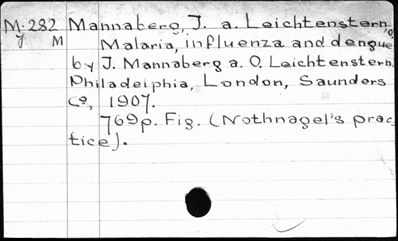 M-282 Mannaberg, J. a. Leichtenstern, O.
J M Malaria, influenza and dengue
by J. Mannaberg a. O. Leichtenstern.
Philadelphia, London, Saunders
Co, 1907.
769p. Fig. (Nothnagel's prac-
tice).